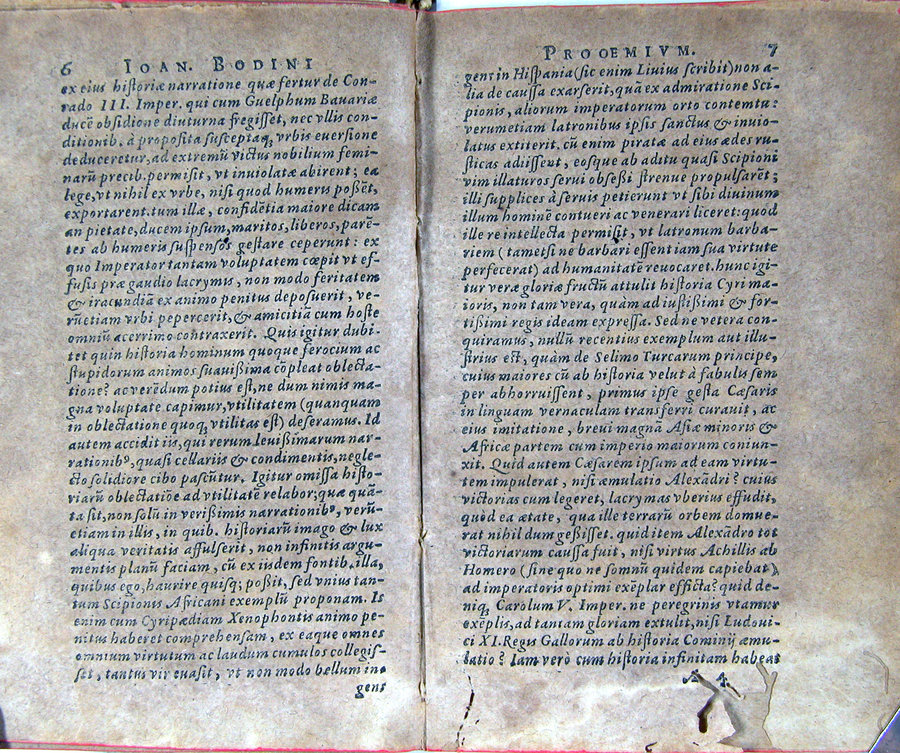 6 IOAN. BODINI
ex eius historiæ narratione quæ fertur de Con-
rado III. Imper. qui cum Guelphum Bauariæ
ducē obsidione diuturna fregisset, nec vllis con-
ditionib. à proposita susceptaq; vrbis euersione
deduceretur, ad extremū victus nobilium femi-
narū precib. permisit, vt inuiolatæ abirent; ea
lege, vt nihil ex vrbe, nisi quod humeris possēt,
exportarent. tum illæ, confidētia maiore dicam
an pietate, ducem ipsum, maritos, liberos, parē-
tes ab humeris suspensos gestare ceperunt: ex
quo Imperator tantam voluptatem cœpit vt ef-
fusis præ gaudio lacrymis, non modo feritatem
& iracundiā ex animo penitus deposuerit, ve-
rūetiam vrbi pepercerit, & amicitiā cum hoste
omniū acerrimo contraxerit. Quis igitur dubi-
tet quin historia hominum quoque ferocium ac
stupidorum animos suauißima cōpleat oblecta-
tione? ac verēdum potius est, ne dum nimis ma-
gna voluptate capimur, vtilitatem (quanquam
in oblectatione quoq; vtilitas est) deseramus. Id
autem accidit iis, qui rerum leuißimarum nar-
rationibꝰ, quasi cellariis & condimentis, negle-
cto solidiore cibo pascūtur. Igitur omissa histo-
riarū oblectatiōe ad vtilitatē relabor; quæ quā-
ta sit, non solū in verißimis narrationibꝰ, verū-
etiam in illis, in quib. historiarū imago & lux
aliqua veritatis affulserit, non infinitis argu-
mentis planū faciam, cū ex iisdem fontib. illa,
quibus ego, haurire quisq; poßit, sed vnius tan-
tum Scipionis Africani exemplū proponam. Is
enim cum Cyripædiam Xenophontis animo pe-
nitus haberet comprehensam, ex eaque omnes
omnium virtutum ac laudum cumulos collegis-
set, tantus vir euasit, vt non modo bellum in-
gens
PROOEMIVM. 7
gens in Hispania (sic enim Liuius scribit) non a-
lia de caussa exarserit, quā ex admiratione Sci-
pionis, aliorum imperatorum orto contemtu:
verumetiam latronibus ipsis sanctus & inuio-
latus extiterit. cū enim piratæ ad eius ædes ru-
sticas adiissent, eosque ab aditu quasi Scipioni
vim illaturos serui obseßi strenue propulsarēt;
illi supplices à seruis petierunt vt sibi diuinum
illum hominē contueri ac venerari liceret: quod
ille re intellecta permisit, vt latronum barba-
riem (tametsi ne barbari essent iam sua virtute
perfecerat) ad humanitatē reuocaret. hunc igi-
tur veræ gloriæ fructū attulit historia Cyri ma-
ioris, non tam vera, quàm ad iustißimi & for-
tißimi regis ideam expressa. Sed ne vetera con-
quiramus, nullū recentius exemplum aut illu-
strius est, quàm de Selimo Turcarum principe,
cuius maiores cū ab historia velut à fabulis sem
per abhorruissent, primus ipse gesta Cæsaris
in linguam vernaculam transferri curauit, ac
eius imitatione, breui magnā Asiæ minoris &
Africæ partem cum imperio maiorum coniun-
xit. Quid autem Cæsarem ipsum ad eam virtu-
tem impulerat, nisi æmulatio Alexādri? cuius
victorias cum legeret, lacrymas vberius effudit,
quòd ea ætate, qua ille terrarū orbem domue-
rat nihil dum geßisset. quid item Alexādro tot
victoriarum caussa fuit, nisi virtus Achillis ab
Homero (sine quo ne somnū quidem capiebat)
ad imperatoris optimi exēplar efficta? quid de-
niq; Carolum V. Imper. ne peregrinis vtamur
exēplis, ad tantam gloriam extulit, nisi Ludoui-
ci XI. Regis Gallorum ab historia Cominij æmu-
latio? Iam verò cum historia infinitam habeat